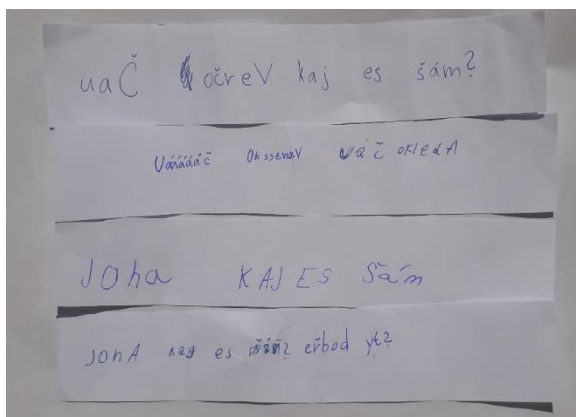 uaČ očreV kaj es šám?
Váááááč Okssenav váč okledA
JOha KAJ ES Šám
JOhA kaj es eřbod yt?